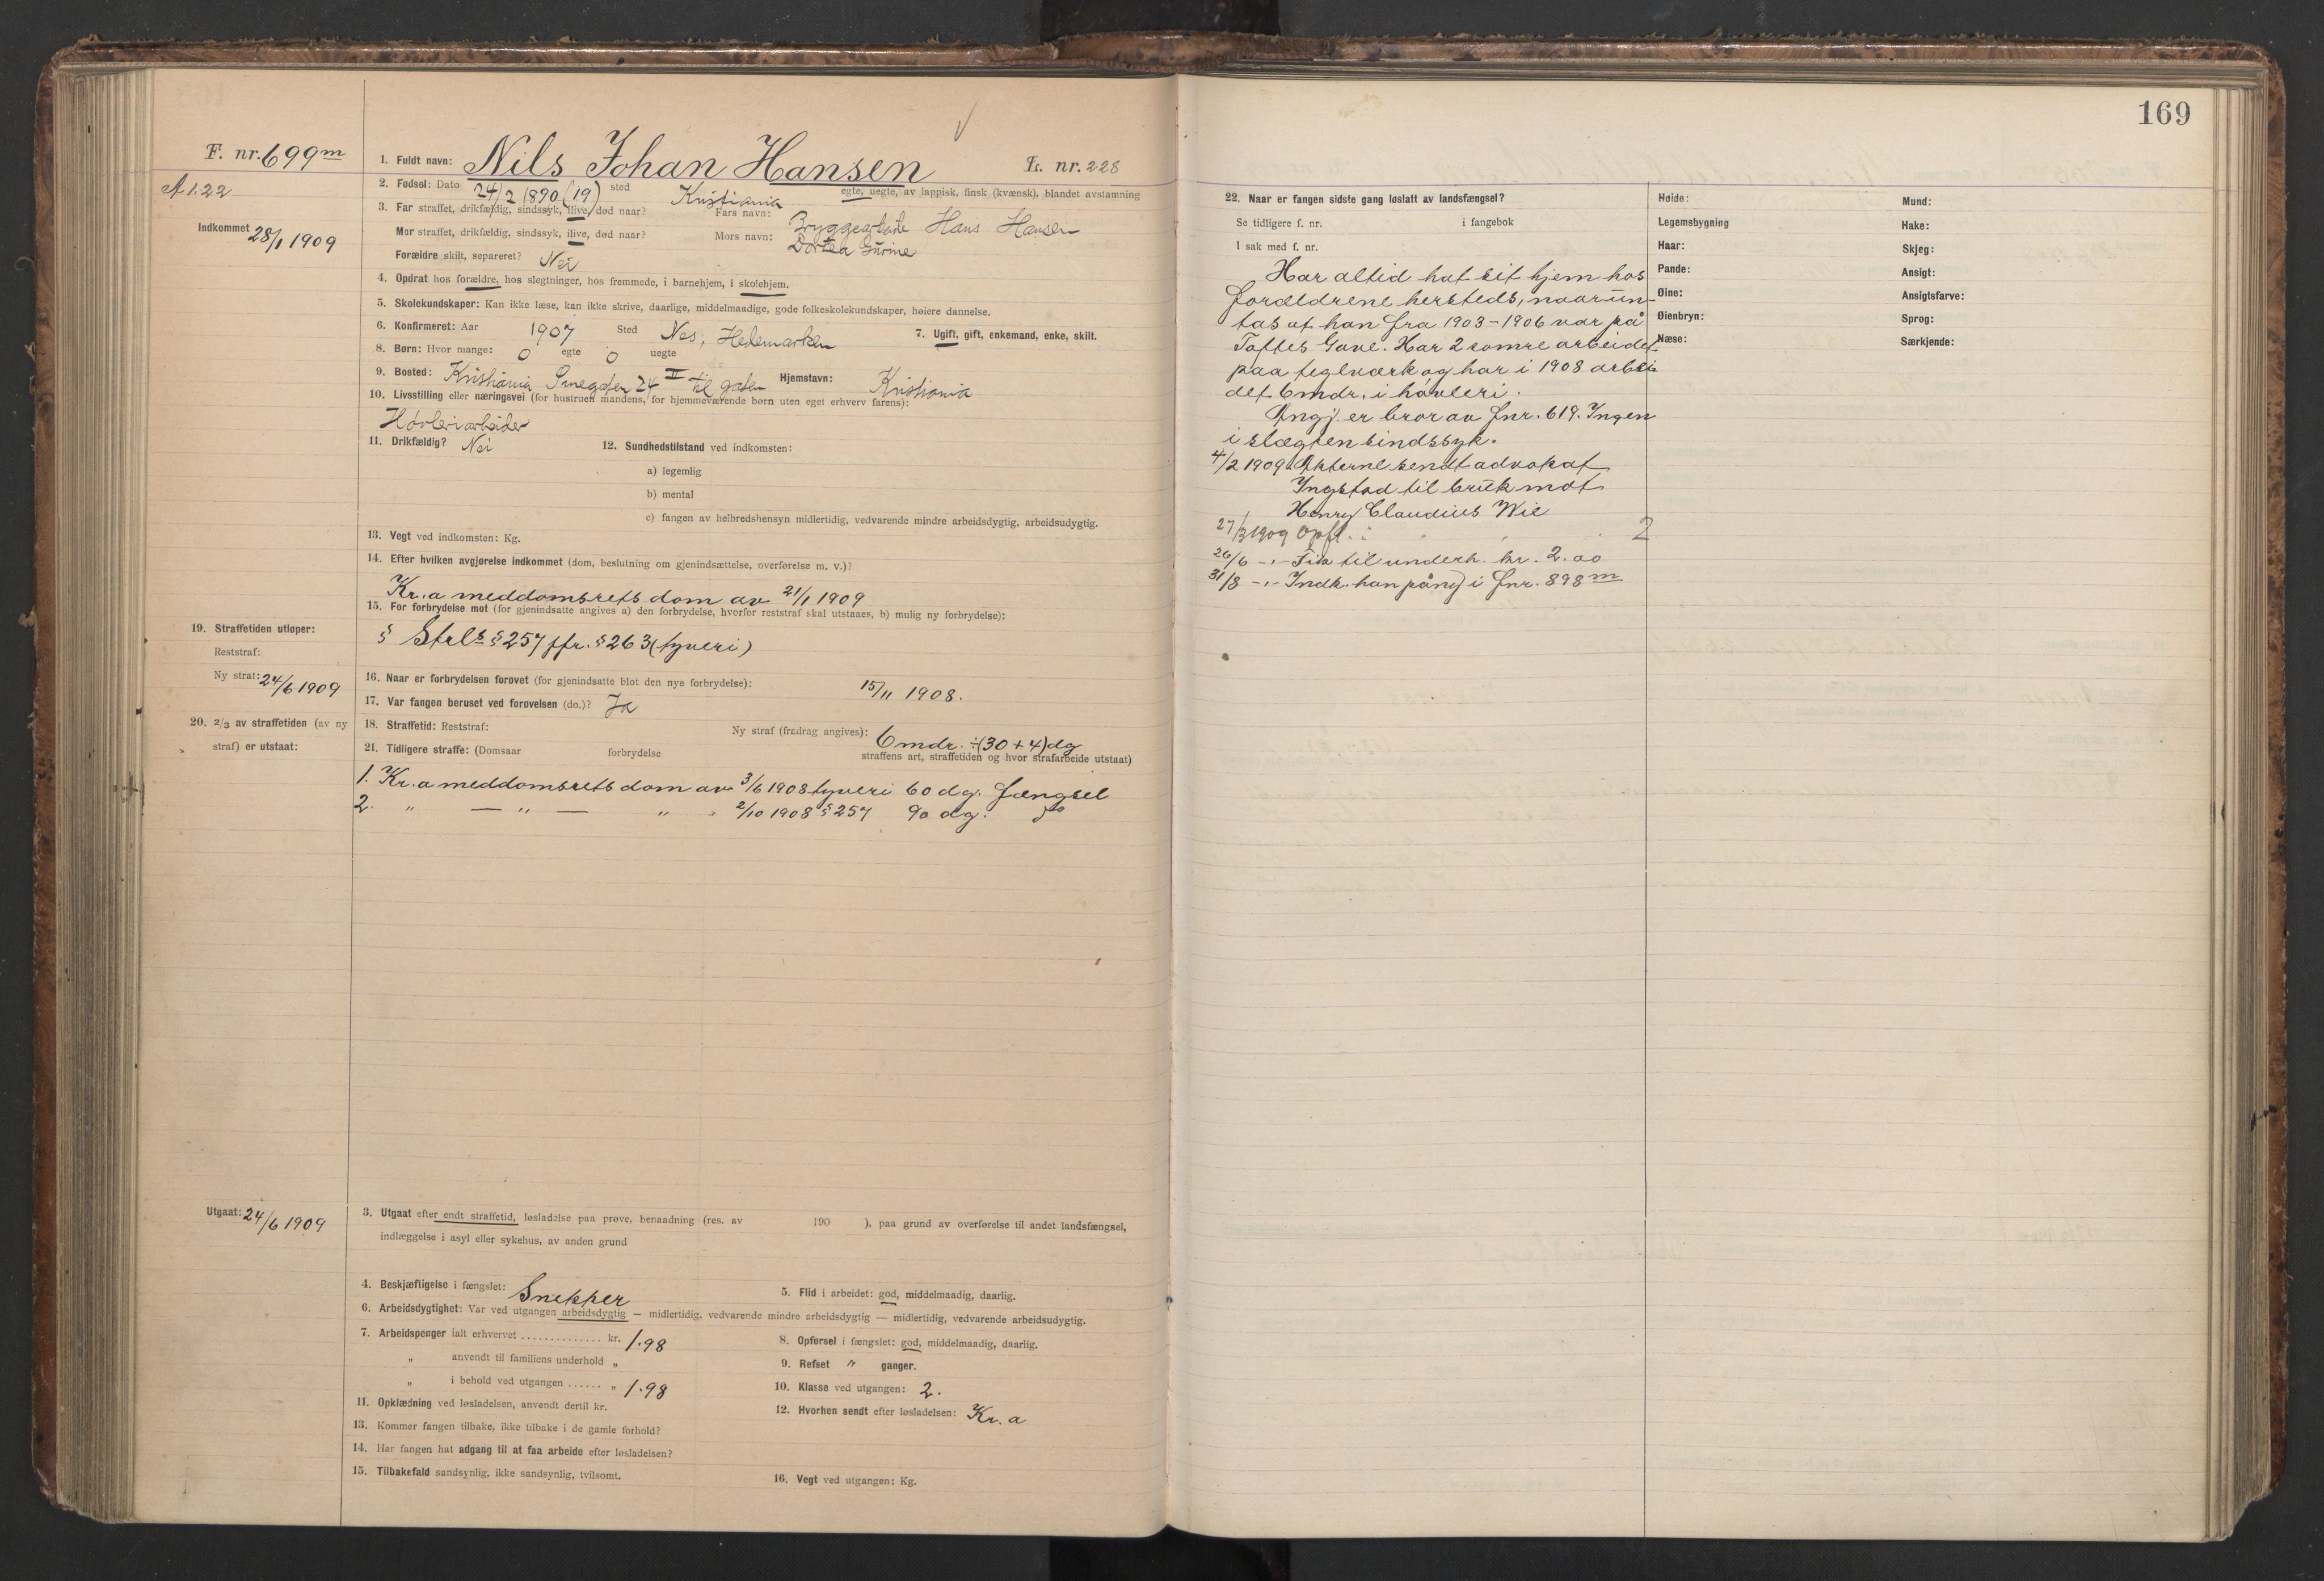 169
F. nr. 699m
A 122
Indkommet 28/1 1909
1. Fuldt navn: Nils Johan Hansen L. nr. 228
2. Fødsel: Dato 24/2 1890 (19) sted Kristiania egte, uegte, av lappisk, finsk (kvænsk), blandet avstamning
3. Far straffet, drikfældig, sindssyk, ilive, død naar? Fars navn: Hans Hansen
Mor straffet, drikfældig, sindssyk, ilive, død naar? Mors navn: Dortea Gurine
Forældre skilt, separeret? Nei
4. Opdrat hos forældre, hos slegtninger, hos fremmede, i barnehjem, i skolehjem.
5. Skolekundskaper: Kan ikke læse, kan ikke skrive, daarlige, middelmaadige, gode folkeskolekundskaper, høiere dannelse.
6. Konfirmeret: Aar 1907 Sted Nes, Hedemarken 7. Ugift, gift, enkemand, enke, skilt.
8. Børn: Hvor mange: 0 egte 0 uegte
9. Bosted: Kristiania Smegaten 24 II til gaten Hjemstavn: Kristiania
10. Livsstilling eller næringsvei (for hustruen mandens, for hjemmeværende børn uten eget erhverv farens):
Høvleriarbeider
11. Drikfældig? Nei 12. Sundhedstilstand ved indkomsten:
a) legemlig
b) mental
c) fangen av helbredshensyn midlertidig, vedvarende mindre arbeidsdygtig, arbeidsudygtig.
13. Vegt ved indkomsten: Kg.
14. Efter hvilken avgjørelse indkommet (dom, beslutning om gjenindsættelse, overførelse m. v.)?
Kr.a meddomsrets dom av 21/1 1909
15. For forbrydelse mot (for gjenindsatte angives a) den forbrydelse, hvorfor reststraf skal utstaaes, b) mulig ny forbrydelse):
§ Strl's § 257 jfr. § 263 (tyveri)
19. Straffetiden utløper:
Reststraf:
Ny straf: 24/6 1909
16. Naar er forbrydelsen forøvet (for gjenindsatte blot den nye forbrydelse): 15/11 1908.
17. Var fangen beruset ved forøvelsen (do.)? Ja
20. 2/3 av straffetiden (av ny
straf) er utstaat:
18. Straffetid: Reststraf: Ny straf (fradrag angives): 6 mdr. ÷ (30 + 4) dg
21. Tidligere straffe: (Domsaar forbrydelse straffens art, straffetiden og hvor strafarbeide utstaat)
1. Kr.a meddomsrets dom av 3/6 1908 tyveri 60 dg. fængsel
2. " — " — " 2/10 1908 § 257 90 dg. do
Utgaat: 24/6 1909
3. Utgaat efter endt straffetid, løsladelse paa prøve, benaadning (res. av 190 ), paa grund av overførelse til andet landsfængsel,
indlæggelse i asyl eller sykehus, av anden grund
4. Beskjæftigelse i fængslet: Snekker 5. Flid i arbeidet: god, middelmaadig, daarlig.
6. Arbeidsdygtighet: Var ved utgangen arbeidsdygtig — midlertidig, vedvarende mindre arbeidsdygtig — midlertidig, vedvarende arbeidsudygtig.
7. Arbeidspenger ialt erhvervet .............. kr. 1.98 8. Opførsel i fængslet: god, middelmaadig, daarlig.
" anvendt til familiens underhold " 9. Refset " ganger.
" i behold ved utgangen ...... " 1.98 10. Klasse ved utgangen: 2.
11. Opklædning ved løsladelsen, anvendt dertil kr. 12. Hvorhen sendt efter løsladelsen: Kr.a
13. Kommer fangen tilbake, ikke tilbake i de gamle forhold?
14. Har fangen hat adgang til at faa arbeide efter løsladelsen?
15. Tilbakefald sandsynlig, ikke sandsynlig, tvilsomt. 16. Vegt ved utgangen: Kg.
22. Naar er fangen sidste gang løslatt av landsfængsel?
Se tidligere f. nr. i fangebok
I sak med f. nr.
Har altid hat sit hjem hos
forældrene hersteds, naar und-
tas at han fra 1903-1906 var på
Toftes Gave. Har 2 somre arbeidet
paa teglværk og har i 1908 arbei
det 6 mdr. i høvleri.
Angj. er bror av fnr. 619. Ingen
i slægten sindssyk.
4/2 1909 Akterne sendt advokat
Ingstad til bruk mot
Henry Claudius Wie
27/3 1909 Opfl. i 2
26/6 -"- Fik til underh. kr. 2.00
31/8 -"- Indk. han påny i fnr. 898m
Høide:
Legemsbygning
Haar:
Pande:
Øine:
Øienbryn:
Næse:
Mund:
Hake:
Skjeg:
Ansigt:
Ansigtsfarve:
Sprog:
Særkjende: